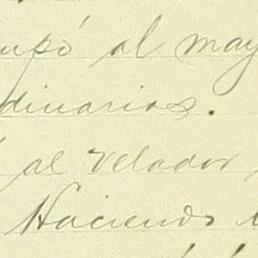 upó al may
dinarios.
al velador
Haciendo